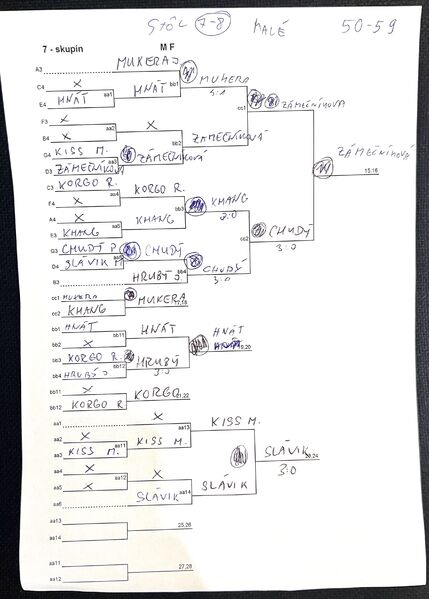 STÔL 7-8 MALÉ 50-59
7 - skupin M F
A3 MUKERA J
C4 X bb1 MUKERA
E4 HNÁT aa1 HNÁT 3:1
cc1 ZÁMEČNÍKOVÁ
F3 X
B4 X aa2 X
bb2 ZÁMEČNÍKOVÁ
G4 KISS M. aa3 ZÁMEČNÍKOVÁ
D3 ZÁMEČNÍKOVÁ
ZÁMEČNÍKOVÁ 15:16
C3 KORGO R.
F4 X aa4 KORGO R.
bb3 KHANG 3:0
A4 X
E3 KHANG aa5 KHANG
cc2 CHUDÝ 3:0
G3 CHUDÝ P.
D4 SLÁVIK M. CHUDÝ
bb4 CHUDÝ 3:0
B3 HRUBÝ J
cc1 MUKERA
cc2 KHANG MUKERA 17,18
bb1 HNÁT
bb2 X bb11 HNÁT
HNÁT 19,20
bb3 KORGO R. bb12 HRUBÝ 3:0
bb4 HRUBÝ J
bb11 X
bb12 KORGO R KORGO 21,22
aa1 X aa13 KISS M.
aa2 X
aa3 KISS M. aa11 KISS M.
SLÁVIK 23,24
3:0
aa4 X
aa5 X aa12 X
aa14 SLÁVIK
aa6 SLÁVIK
aa13
aa14 25,26
aa11
aa12 27,28